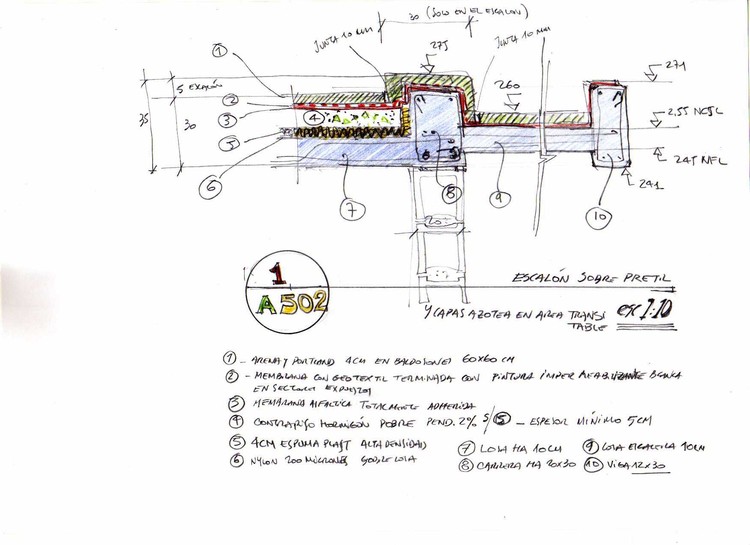 30 (SOLO EN EL ESCALON)
JUNTA 10 MM
JUNTA 10 MM
275
271
1
5 ESCALÓN
260
2
3
4
35
30
2,55 NCSL
5
245 NFL
6
241
8
7
9
10
20
1
A 502
ESCALÓN SOBRE PRETIL
Y CAPAS AZOTEA EN AREA TRANSI
TABLE
esc 1:10
1 - ARENA Y PORTLAND 4CM EN BALDOSONES 60X60 CM
2 - MEMBRANA CON GEOTEXTIL TERMINADA CON PINTURA IMPERMEABILIZANTE BLANCA
EN SECTORES EXPUESTOS
3 MEMBRANA ASFALTICA TOTALMENTE ADHERIDA
4 CONTRAPISO HORMIGÓN POBRE PEND. 2% S/ 5 - ESPESOR MÍNIMO 5CM
5 4CM ESPUMA PLAST ALTA DENSIDAD
6 NYLON 200 MICRONES SOBRE LOSA
7 LOSA HA 10CM
8 CARRERA HA 20X30
9 LOSA ESCALERA 10CM
10 VIGA 12X30